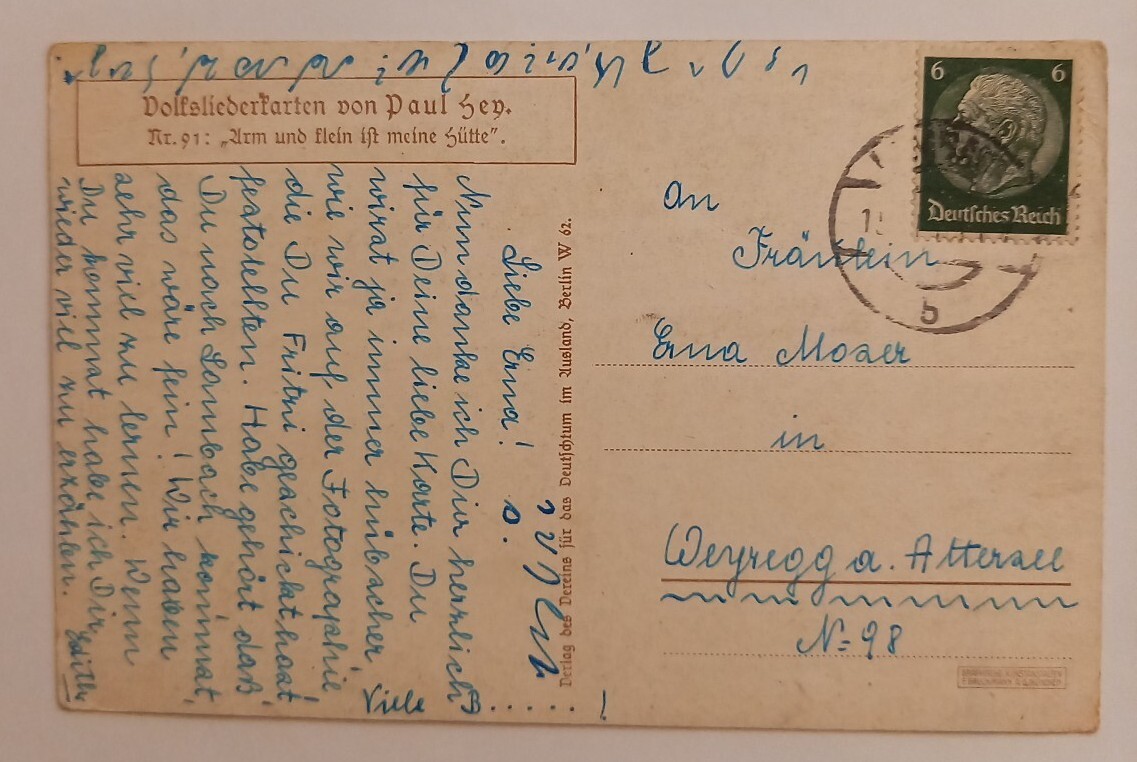 Volksliederkarten von Paul Hey.
Nr. 91: „Arm und klein ist meine Hütte“.
Liebe Erna!
Nun danke ich Dir herzlich
für Deine liebe Karte. Du
wirst ja immer hübscher
wie wir auf der Fotographie,
die Du Fritzi geschickt hast
feststellten. Habe gehört daß
Du nach Lambach kommst,
das wäre fein! Wir haben
sehr viel zu lernen. Wenn
Du kommst habe ich Dir
wieder viel zu erzählen.
Viele
Edith
Verlag des Vereins für das Deutschtum im Ausland, Berlin W 62.
6 6
Deutsches Reich
b
An
Fräulein
Erna Moser
in
Weyregg a. Attersee
N= 98